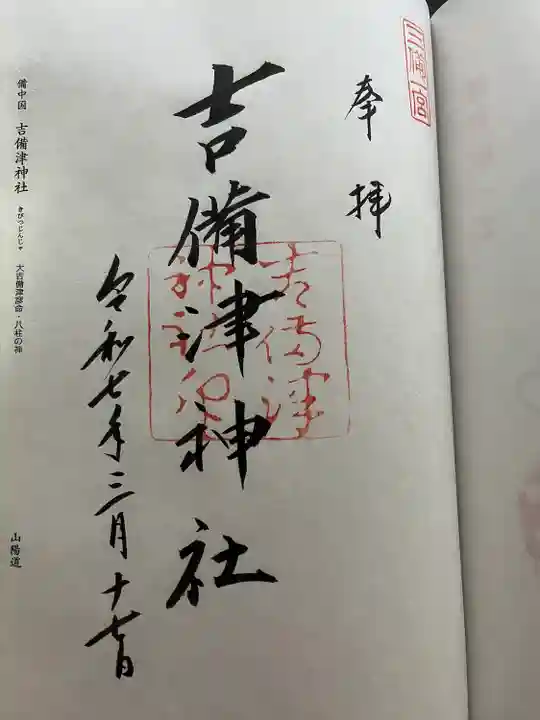 三備一宮
奉拝
吉備津神社
吉備津
神社印
令和七年三月十七日
備中国 吉備津神社 きびつじんじゃ 大吉備津彦命・八柱の神 山陽道